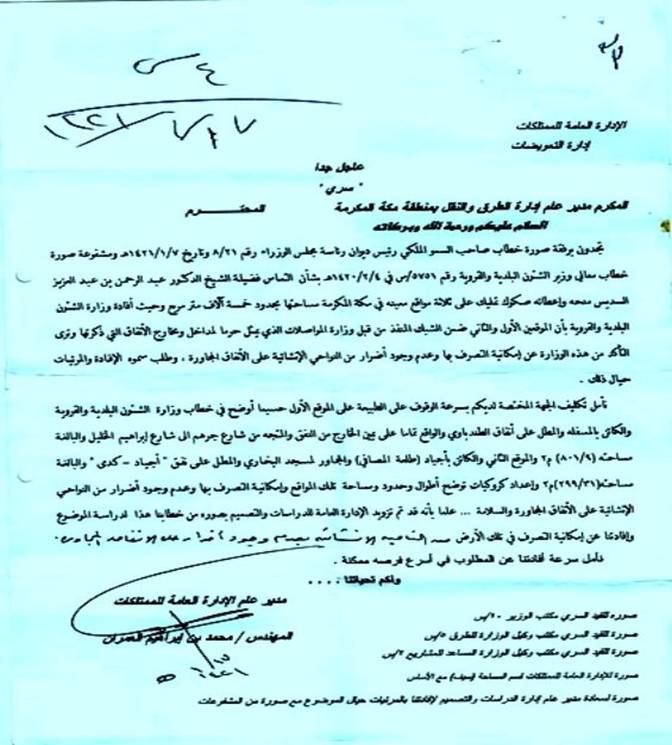 ٤ س
١٤٢١/٧/٢٧
الإدارة العامة للممتلكات
إدارة التعويضات
عاجل جدا
" سري "
المكرم مدير عام إدارة الطرق والنقل بمنطقة مكة المكرمة المحتـــــرم
السلام عليكم ورحمة الله وبركاته
تجدون برفقة صورة خطاب صاحب السمو الملكي رئيس ديوان رئاسة مجلس الوزراء رقم ٨/٢١ وتاريخ ١٤٢١/١/٧هـ ومشفوعة صورة
خطاب معالي وزير الشئون البلدية والقروية رقم ٥٧٥١/س في ١٤٢٠/٢/٤هـ بشأن التماس فضيلة الشيخ الدكتور عبد الرحمن بن عبد العزيز
السديس منحه وإعطائه صكوك تمليك على ثلاثة مواقع معينه في مكة المكرمة مساحتها بحدود خمسة آلاف متر مربع وحيث أفادة وزارة الشئون
البلدية والقروية بأن الموقعين الأول والثاني ضمن الشبك المنفذ من قبل وزارة المواصلات الذي يمثل حرما لمداخل ومخارج الأنفاق التي ذكرتها وترى
التأكد من هذه الوزارة عن إمكانية التصرف بها وعدم وجود أضرار من النواحي الإنشائية على الأنفاق المجاورة ، وطلب سموه الإفادة والمرئيات
حيال ذلك .
نأمل تكليف الجهة المختصة لديكم بسرعة الوقوف على الطبيعة على الموقع الأول حسبما أوضح في خطاب وزارة الشئون البلدية والقروية
والكائن بالمسفله والمطل على أنفاق الطندباوي والواقع تماما على يمين الخارج من النفق والمتجه من شارع جرهم الى شارع إبراهيم الخليل والبالغة
مساحته (٨٠١/٩) م٢ والموقع الثاني والكائن بأجياد (طلعة المصافي) والمجاور لمسجد البخاري والمطل على نفق " أجياد - كدى " والبالغة
مساحته(٢٩٩/٣١)م٢ وإعداد كروكيات توضح أطوال وحدود ومساحة تلك المواقع وإمكانية التصرف بها وعدم وجود أضرار من النواحي
الإنشائية على الأنفاق المجاورة والسلامة ... علما بأنه قد تم تزويد الإدارة العامة للدراسات والتصميم بصوره من خطابنا هذا لدراسة الموضوع
وإفادتنا عن إمكانية التصرف في تلك الأرض من الناحية الإنشائية
نأمل سرعة أفادتنا عن المطلوب في أسرع فرصه ممكنة .
ولكم تحياتنا ....
مدير عام الإدارة العامة للممتلكات
المهندس / محمد بن إبراهيم
صوره للقيد السري مكتب الوزير ١٠/س
صوره للقيد السري مكتب وكيل الوزارة للطرق ٥/س
صوره للقيد السري مكتب وكيل الوزارة المساعد للمشاريع ٢/س
صورة للإدارة العامة للممتلكات قسم المساحة مع الأساس
صورة لسعادة مدير عام إدارة الدراسات والتصميم لإفادتنا بالمرئيات حيال الموضوع مع صورة من المشفوعات